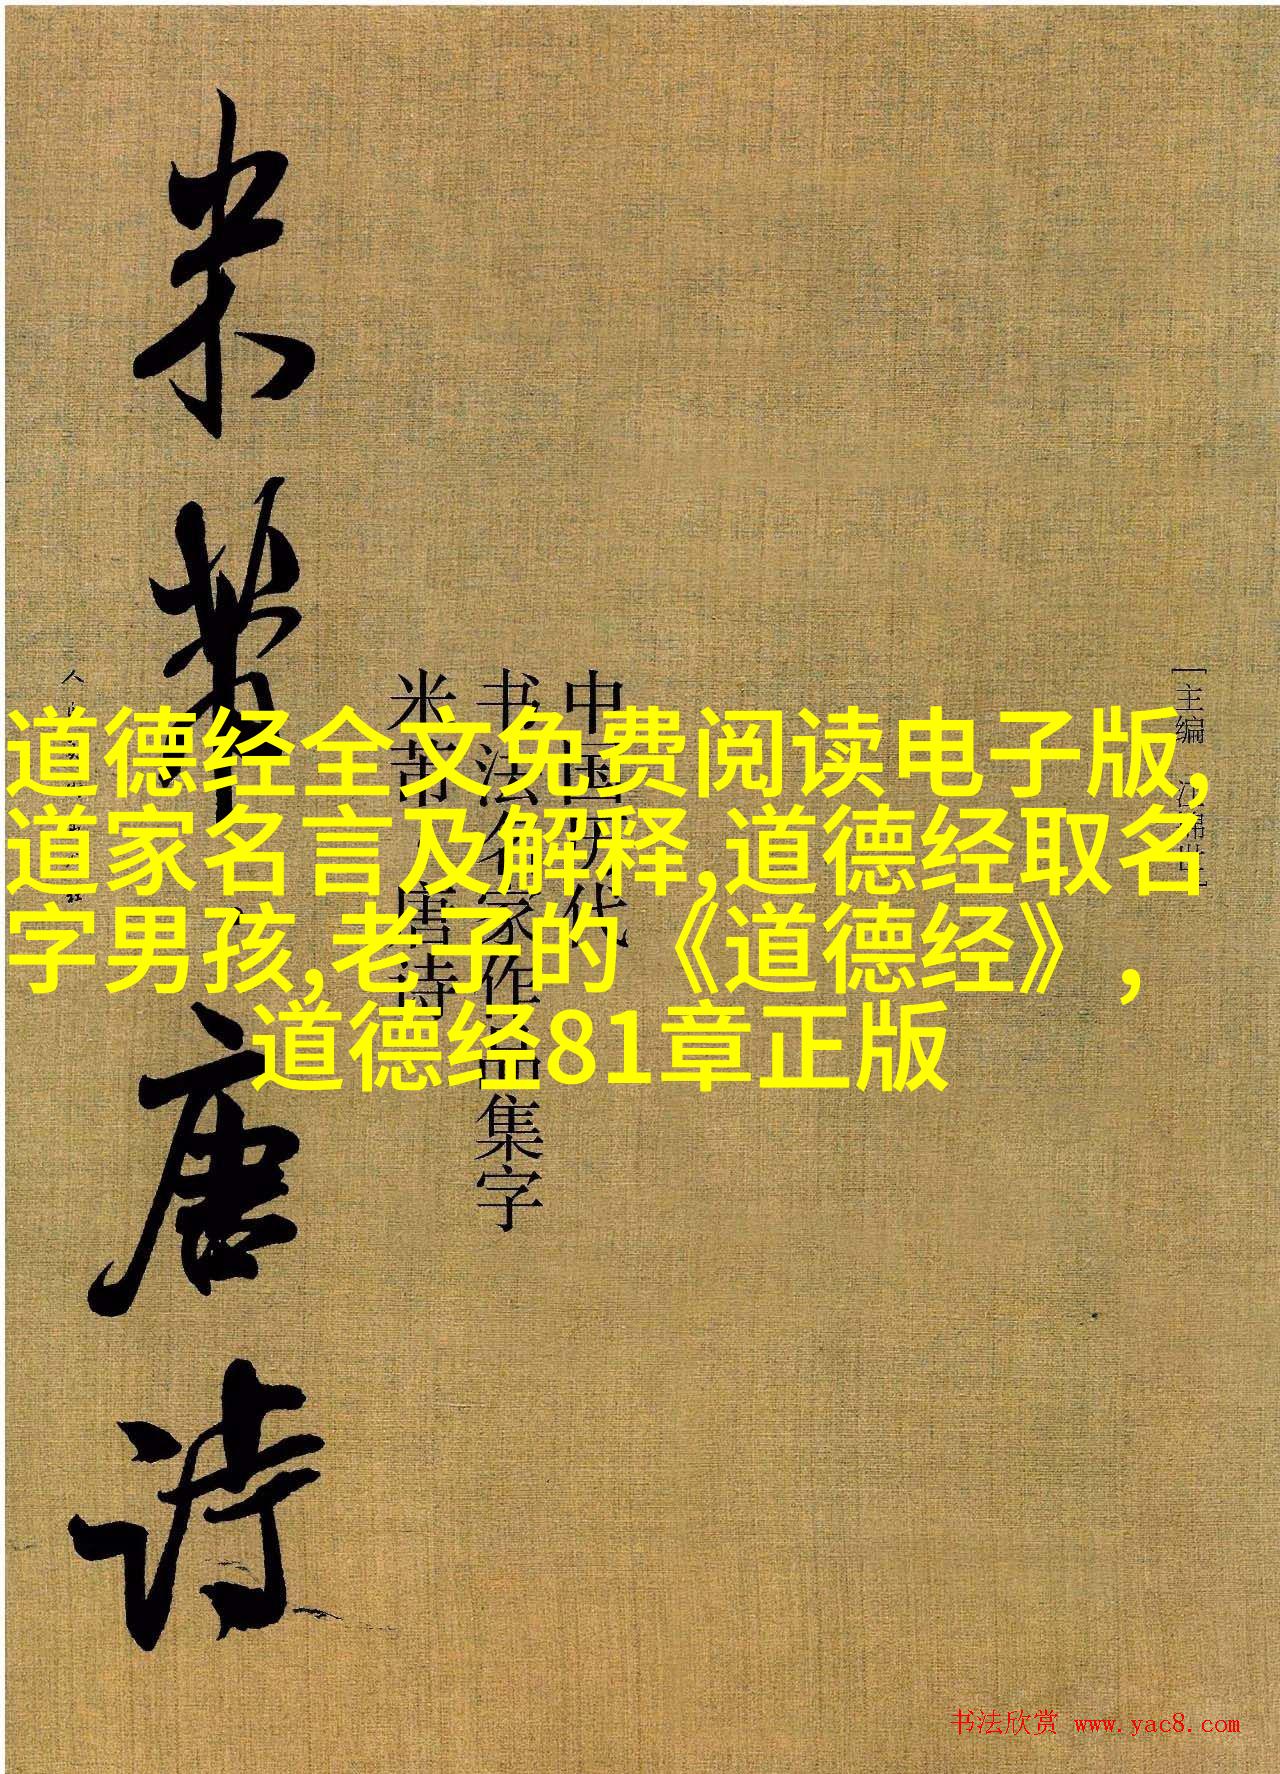 米芾唐诗
[主编 汪锦世]
中国历代
书法名家作品集字
米芾 唐诗
道德经全文免费阅读电子版,
道家名言及解释,道德经取名
字男孩,老子的《道德经》,
道德经81章正版
书法欣赏 www.yac8.com